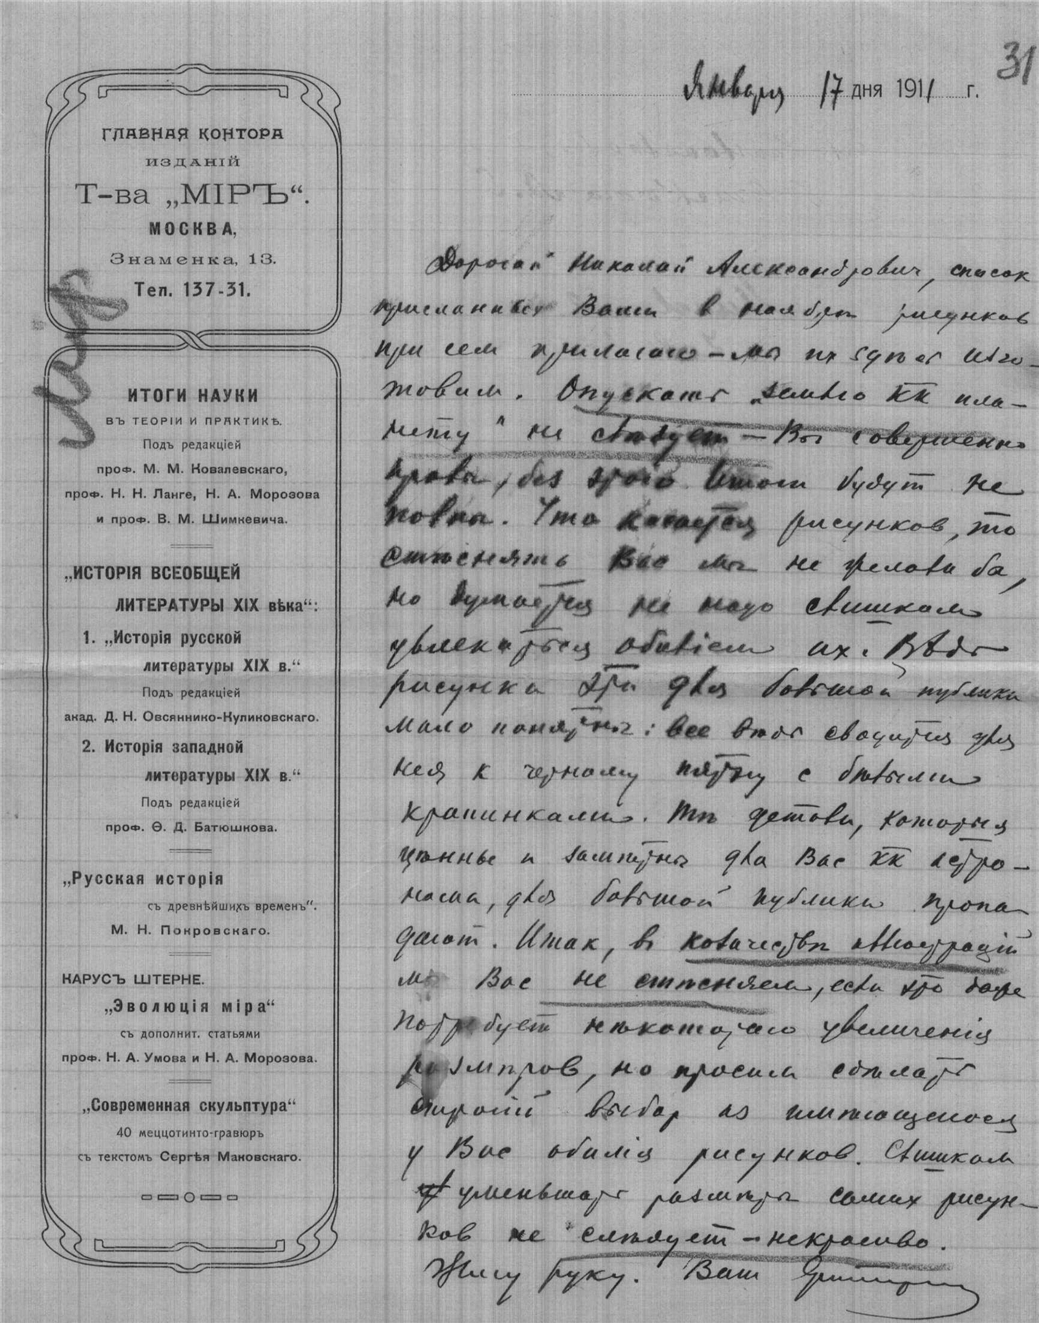 31
Января 17 дня 1911 г.
ГЛАВНАЯ КОНТОРА
ИЗДАНІЙ
Т-ва „МІРЪ“.
МОСКВА,
Знаменка, 13.
Тел. 137-31.
ИТОГИ НАУКИ
ВЪ ТЕОРІИ И ПРАКТИКѢ.
Подъ редакціей
проф. М. М. Ковалевскаго,
проф. Н. Н. Ланге, Н. А. Морозова
и проф. В. М. Шимкевича.
„ИСТОРІЯ ВСЕОБЩЕЙ
ЛИТЕРАТУРЫ XIX вѣка“:
1. „Исторія русской
литературы XIX в.“
Подъ редакціей
акад. Д. Н. Овсяннико-Куликовскаго.
2. Исторія западной
литературы XIX в.“
Подъ редакціей
проф. Ѳ. Д. Батюшкова.
„Русская исторія
съ древнѣйшихъ временъ“.
М. Н. Покровскаго.
КАРУСЪ ШТЕРНЕ.
„Эволюція міра“
съ дополнит. статьями
проф. Н. А. Умова и Н. А. Морозова.
„Современная скульптура“
40 меццотинто-гравюръ
съ текстомъ Сергѣя Маковскаго.
Дорогой Николай Александрович, список
присланных Вами в ноябрѣ рисунков
при сем прилагаю – мы их будет изго-
товим. Опускать „землю как пла-
нету“ не слѣдует – Вы совершенно
правы, без этого Итоги будут не
полны. Что касается рисунков, то
стѣснять Вас мы не желали бы,
но думается не надо слишком
увлекаться обиліем их. Вѣдь
рисунки эти для большой публики
мало понятны: все вѣдь сводится для
нея к черному пятну с бѣлыми
крапинками. Тѣ детали, которыя
цѣнны и замѣтны для Вас как астро-
нома, для большой публики пропа-
дают. Итак, в количествѣ иллюстрацій
мы Вас не стѣсняем, если это даже
потребует нѣкотораго увеличенія
размѣров, но просим сдѣлать
строгій выбор из имѣющагося
у Вас обилія рисунков. Слишком
уменьшать размѣры самих рисун-
ков не слѣдует – некрасиво.
Жму руку. Ваш